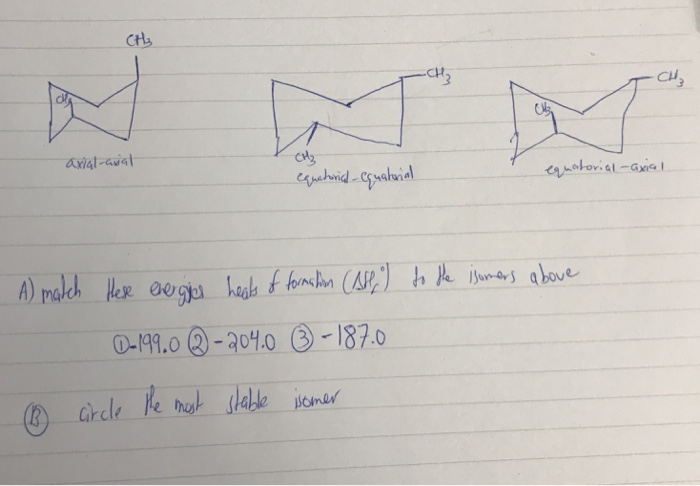 CH3
CH3
axial-axial
-CH3
CH3
equatorial-equatorial
-CH3
CH3
equatorial-axial
A) match these energies heats of formation (ΔHf°) to the isomers above
①-199.0 ②-204.0 ③-187.0
Ⓑ circle the most stable isomer